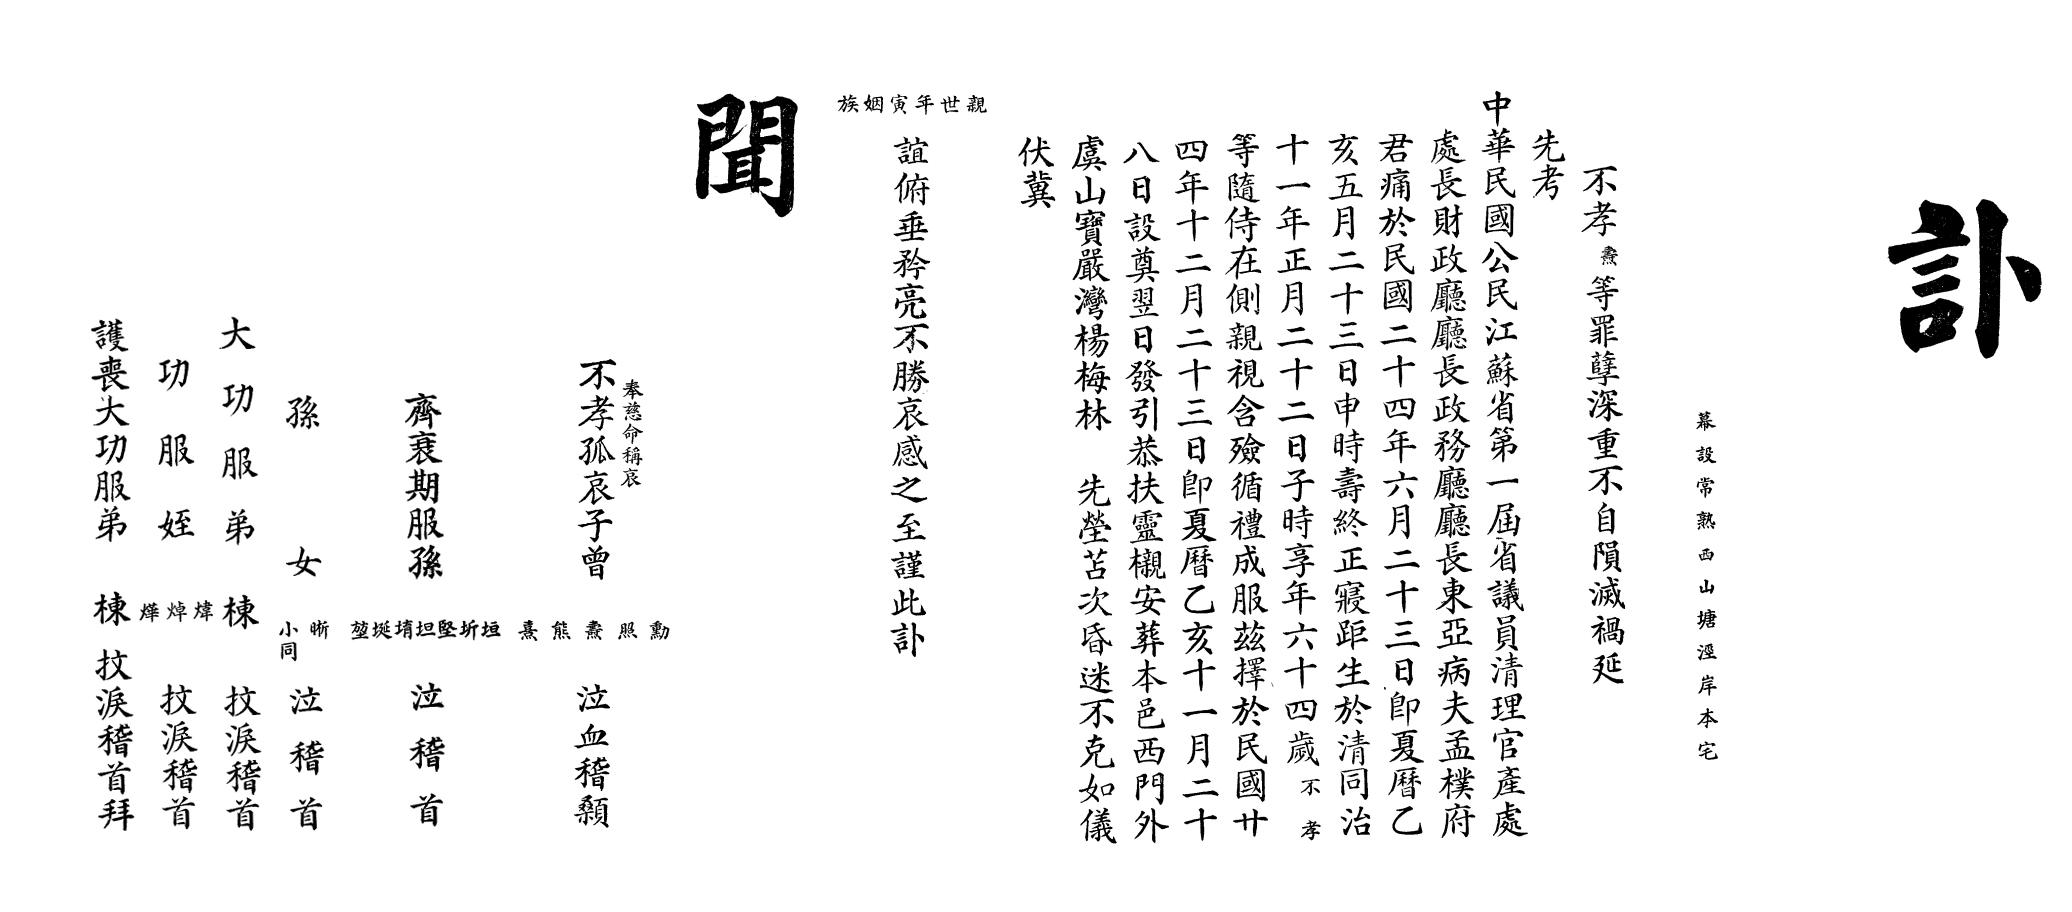 訃
幕設常熟西山塘涇岸本宅
不孝燾等罪孽深重不自隕滅禍延
先考
中華民國公民江蘇省第一屆省議員清理官產處
處長財政廳廳長政務廳廳長東亞病夫孟樸府
君痛於民國二十四年六月二十三日卽夏曆乙
亥五月二十三日申時壽終正寢距生於清同治
十一年正月二十二日子時享年六十四歲不孝
等隨侍在側親視含殮循禮成服茲擇於民國廿
四年十二月二十三日卽夏曆乙亥十一月二十
八日設奠翌日發引恭扶靈櫬安葬本邑西門外
虞山寶嚴灣楊梅林 先塋苫次昏迷不克如儀
伏冀
親世年寅姻族
誼俯垂矜亮不勝哀感之至謹此訃
聞
奉慈命稱哀
不孝孤哀子曾 勳照燾熊熹 泣血稽顙
齊衰期服孫 垣圻堅坦堉埏堃 泣稽首
孫女 晰小同 泣稽首
大功服弟 棟 抆淚稽首
功服姪 煒焯燁 抆淚稽首
護喪大功服弟 棟 抆淚稽首拜